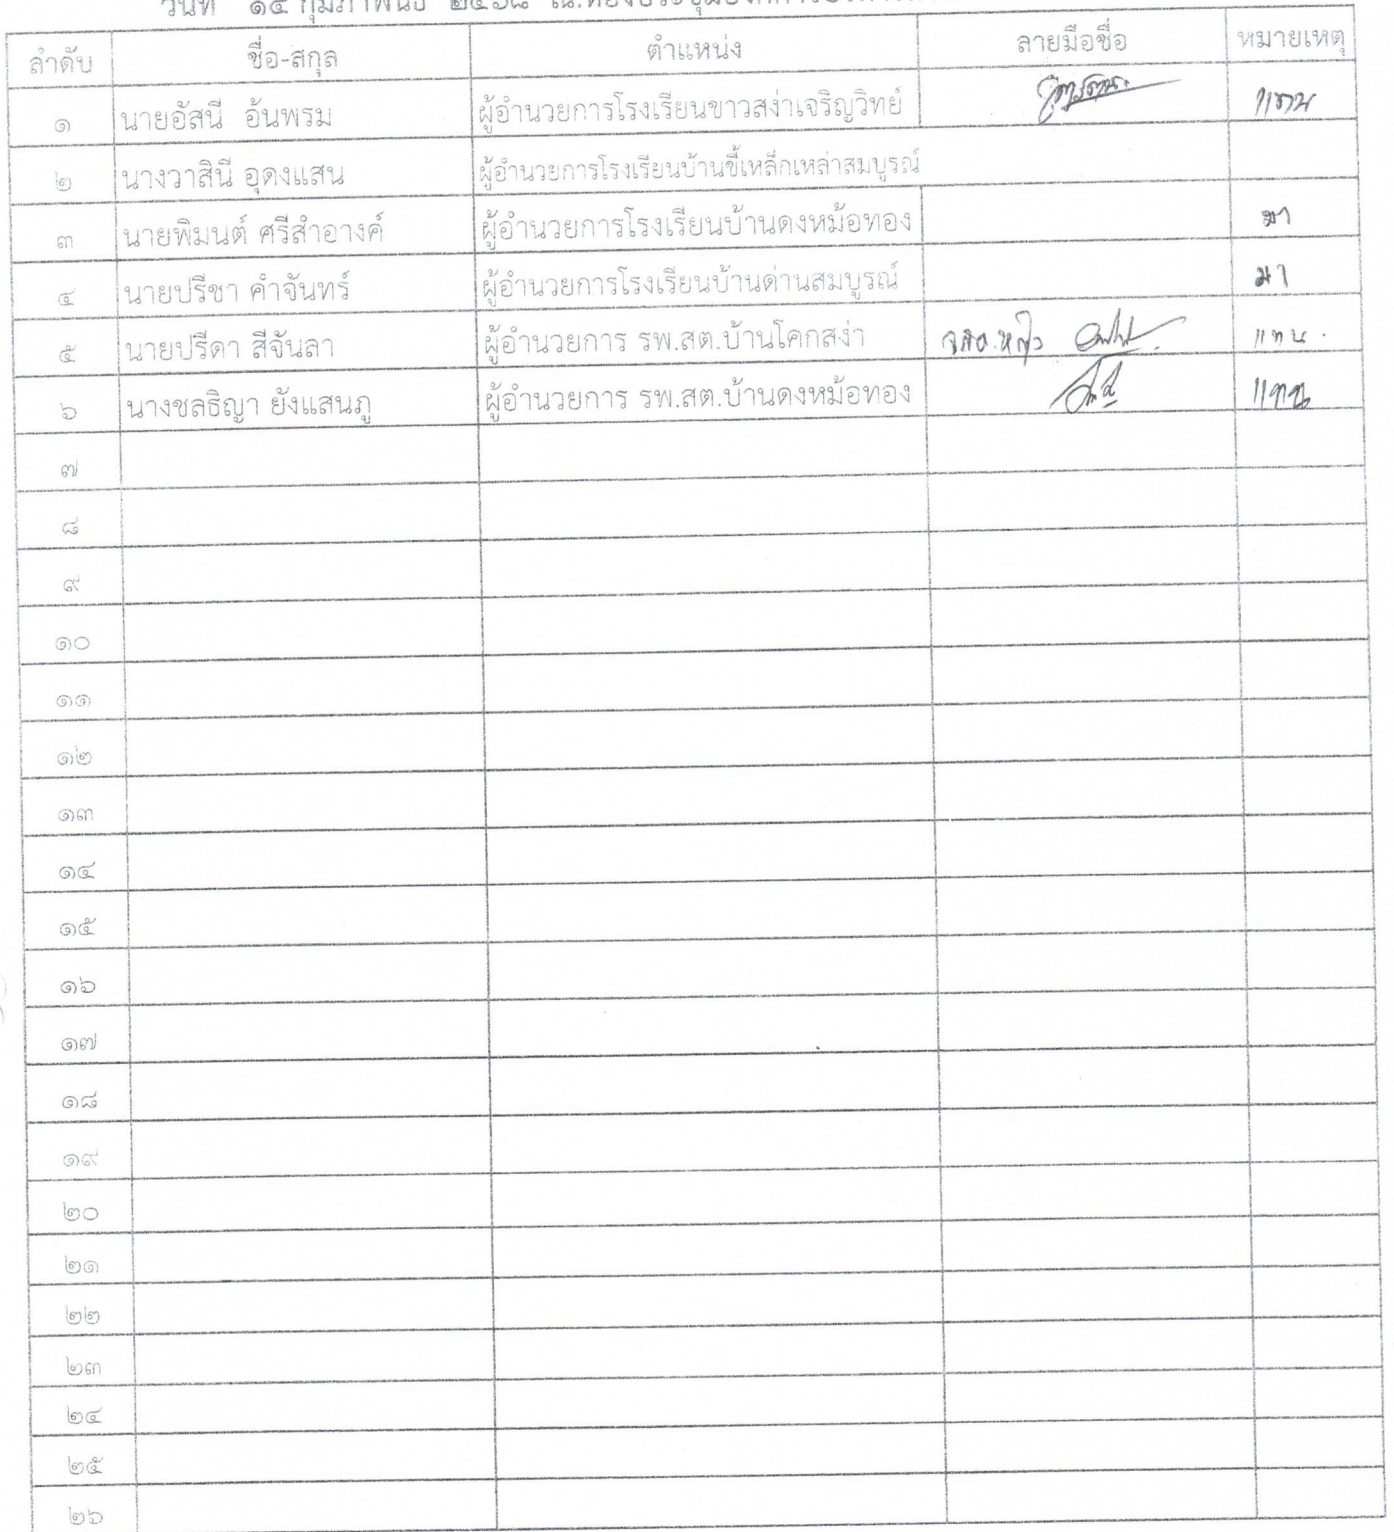 วันที่ ๑๔ กุมภาพันธ์ ๒๕๖๘ ณ.ห้องประชุมองค์การบริหาร
ลำดับ ชื่อ-สกุล ตำแหน่ง ลายมือชื่อ หมายเหตุ
๑ นายอัสนี อ้นพรม ผู้อำนวยการโรงเรียนขาวสง่าเจริญวิทย์ แทน
๒ นางวาสินี อุดงแสน ผู้อำนวยการโรงเรียนบ้านขี้เหล็กเหล่าสมบูรณ์
๓ นายพิมนต์ ศรีสำอางค์ ผู้อำนวยการโรงเรียนบ้านดงหม้อทอง มา
๔ นายปรีชา คำจันทร์ ผู้อำนวยการโรงเรียนบ้านด่านสมบูรณ์ มา
๕ นายปรีดา สีจันลา ผู้อำนวยการ รพ.สต.บ้านโคกสง่า แทน.
๖ นางชลธิญา ยังแสนภู ผู้อำนวยการ รพ.สต.บ้านดงหม้อทอง แทน
๗
๘
๙
๑๐
๑๑
๑๒
๑๓
๑๔
๑๕
๑๖
๑๗
๑๘
๑๙
๒๐
๒๑
๒๒
๒๓
๒๔
๒๕
๒๖